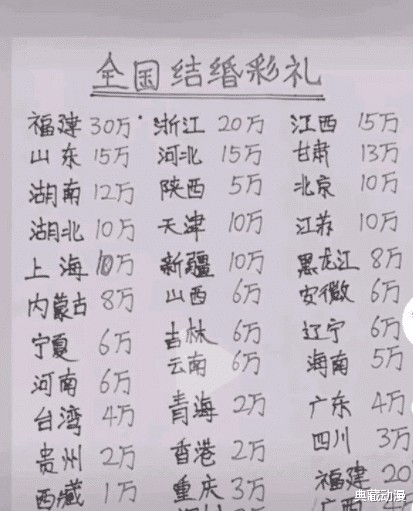 全国结婚彩礼
福建 30万 浙江 20万 江西 15万
山东 15万 河北 15万 甘肃 13万
湖南 12万 陕西 5万 北京 10万
湖北 10万 天津 10万 江苏 10万
上海 10万 新疆 10万 黑龙江 8万
内蒙古 8万 山西 6万 安徽 6万
宁夏 6万 吉林 6万 辽宁 6万
河南 6万 云南 6万 海南 5万
台湾 4万 青海 2万 广东 4万
贵州 2万 香港 2万 四川 3万
西藏 1万 重庆 3万 福建 20
广西 4
典藏动漫